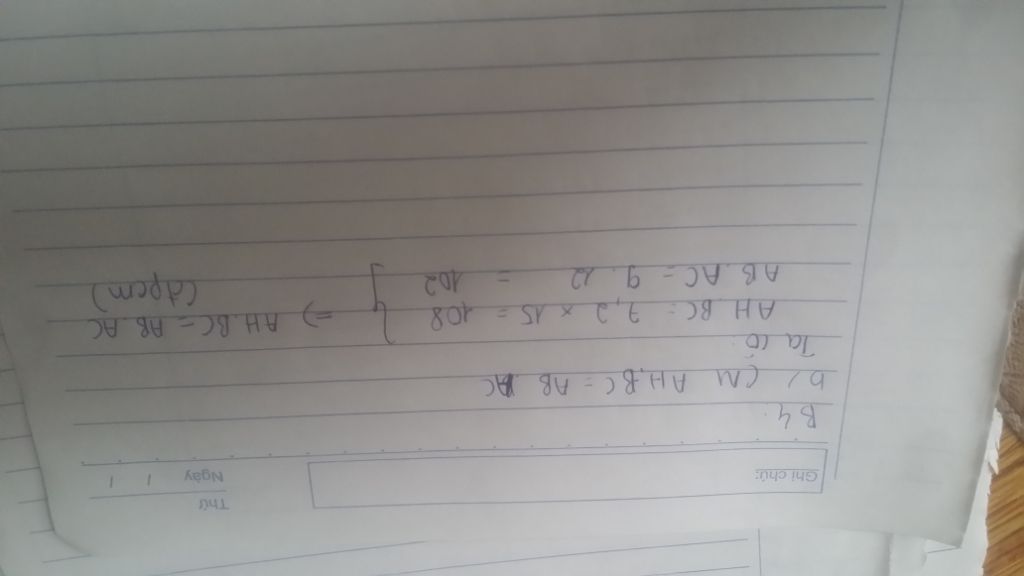 Thứ
Ngày / /
Ghi chú:
B4.
b/ CM AH.BC = AB.AC
Ta có:
AH.BC = 7,2 x 15 = 108 } => AH.BC = AB.AC
AB.AC = 9.12 = 102 (đpcm)